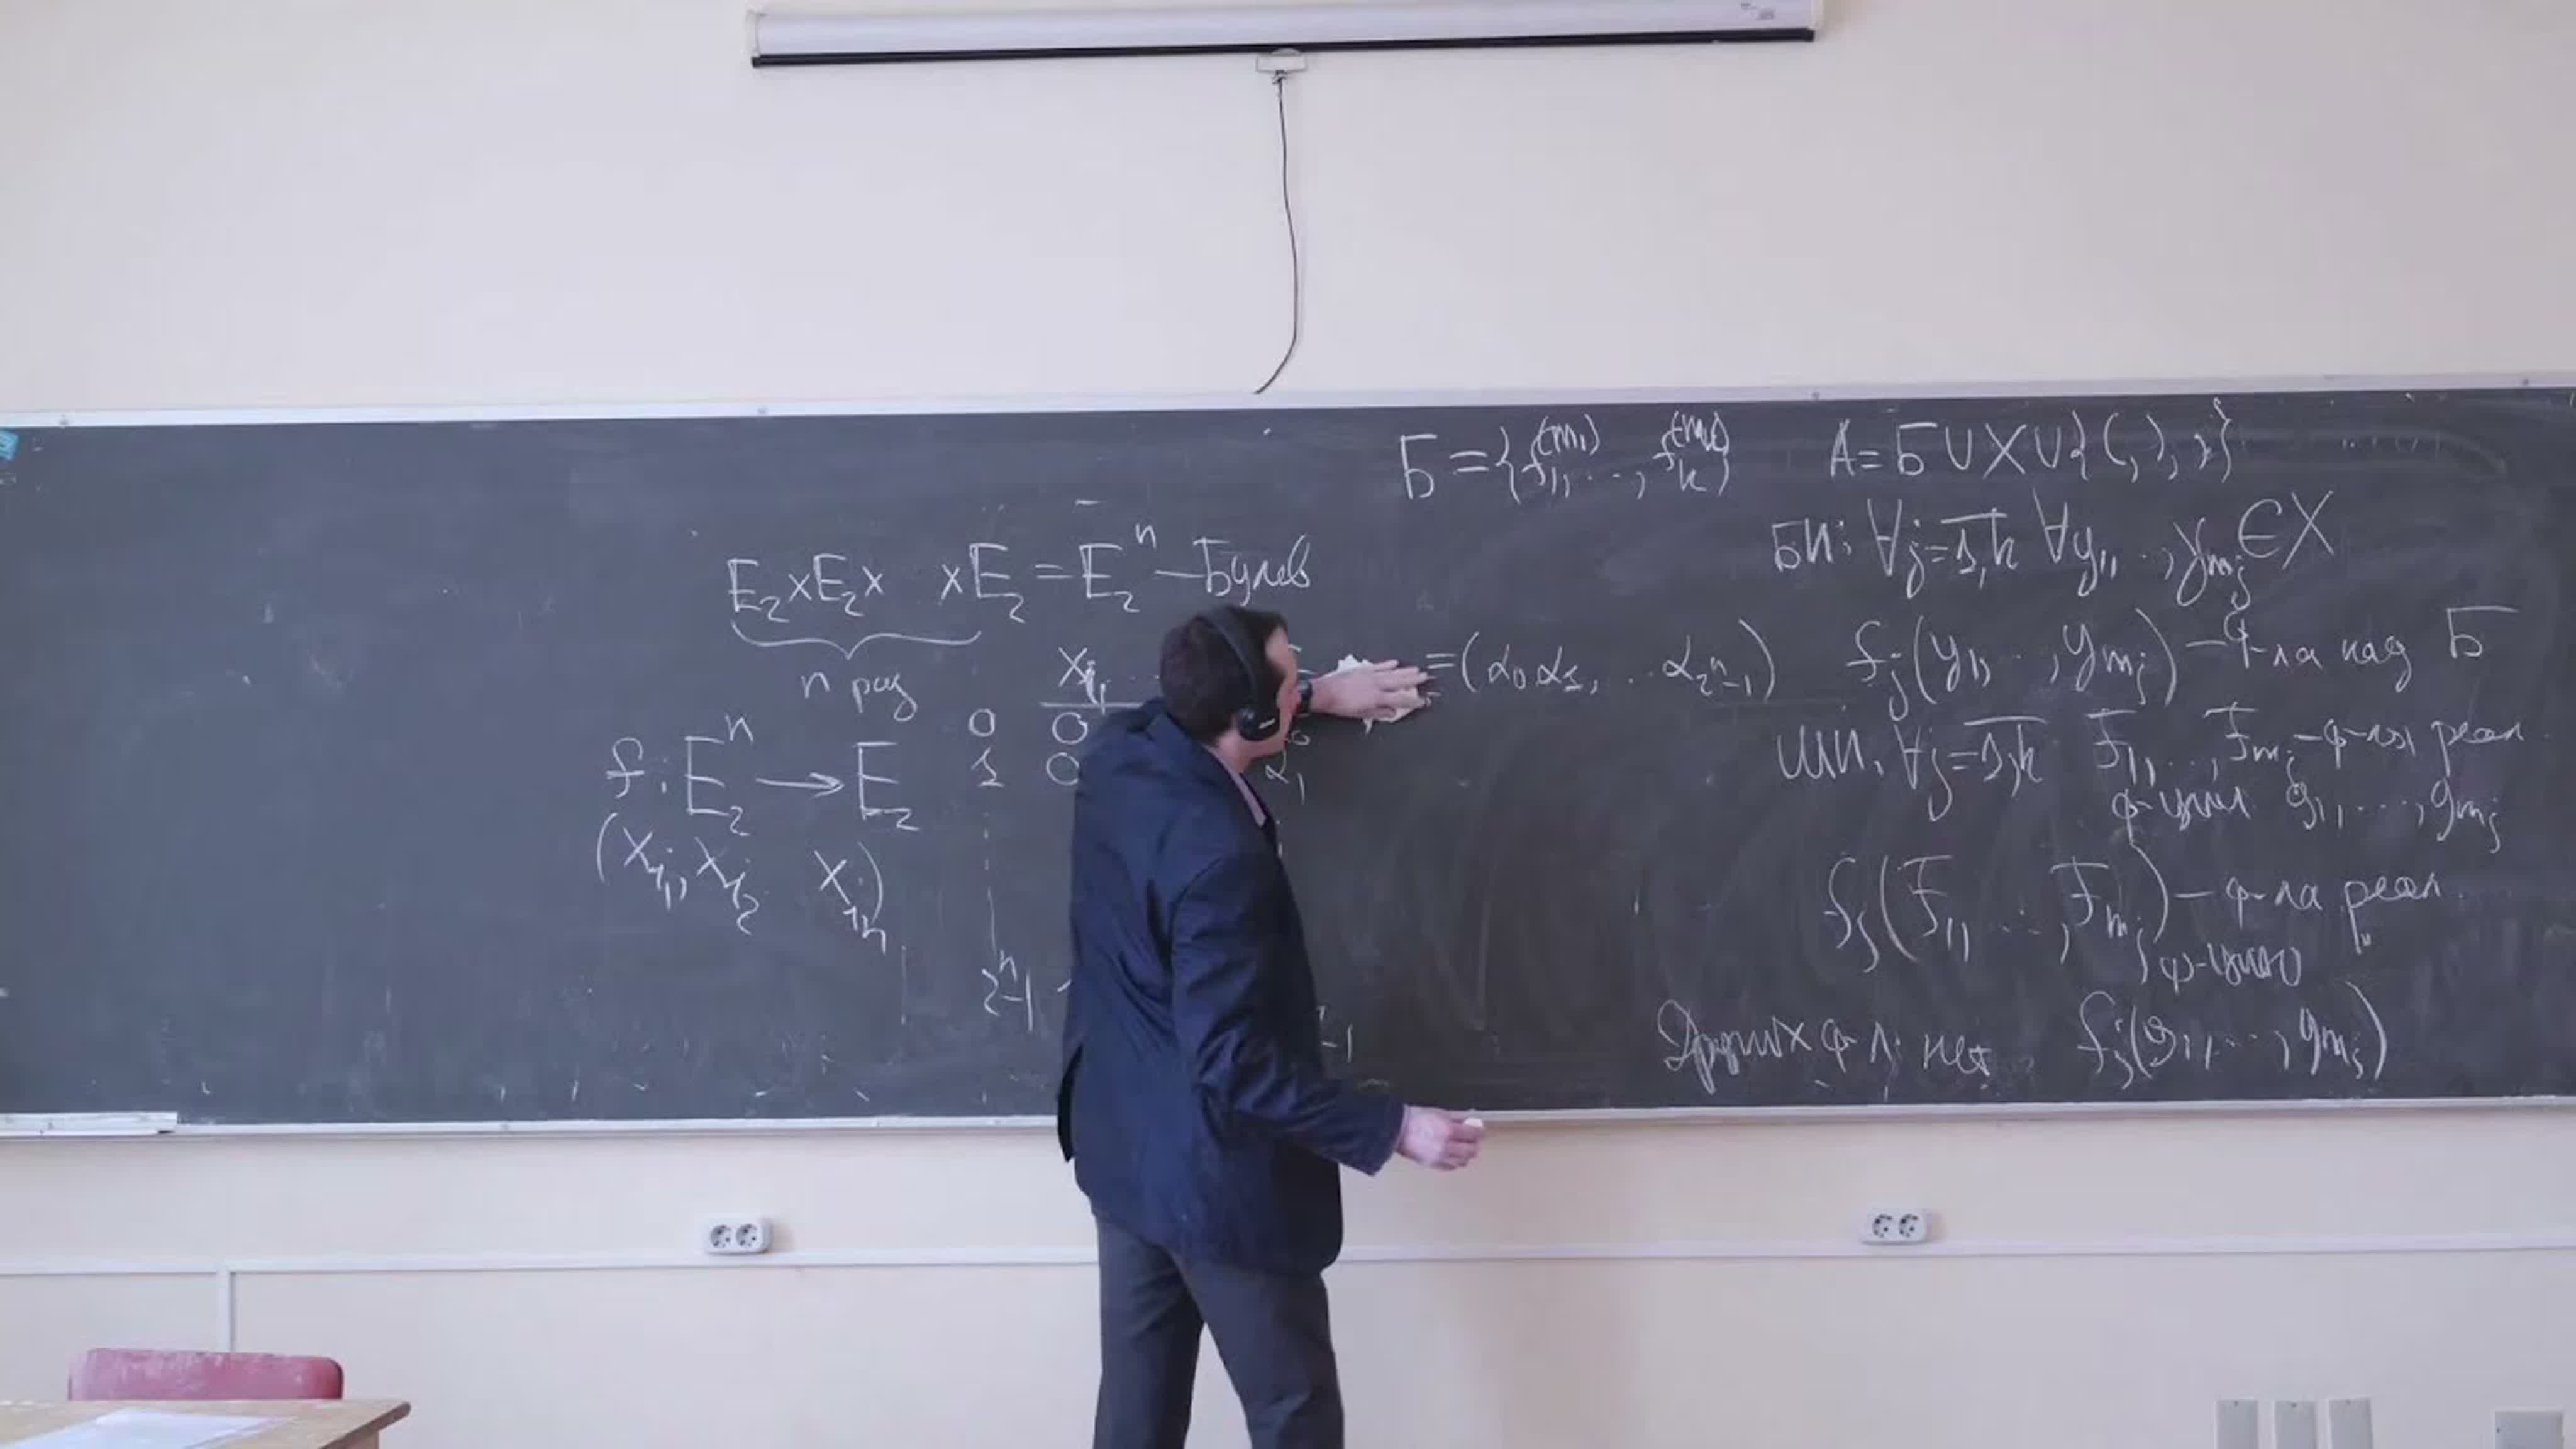 E₂×E₂× ×E₂ = E₂ⁿ – Булев
n раз
f: E₂ⁿ → E₂
(x_{i₁}, x_{i₂} x_{iₙ})
x_{i₁}
0 0
1 0 α₁
2ⁿ-1 -1
=(α₀α₁, .. α_{2ⁿ-1})
Б = {f₁^{(m₁)}, .., f_k^{(m_k)}} A = Б ∪ X ∪ {(, ), ,}
БИ: ∀j=1,k ∀y₁, .., y_{m_j} ∈ X
f_j(y₁, .., y_{m_j}) – ф-ла над Б
ШИ. ∀j=1,k F₁, .., F_{m_j} – ф-лы реал.
ф-ции g₁, ..., g_{m_j}
f_j(F₁, ..., F_{m_j}) – ф-ла реал.
ф-цию
Других ф-л нет f_j(g₁, ..., g_{m_j})